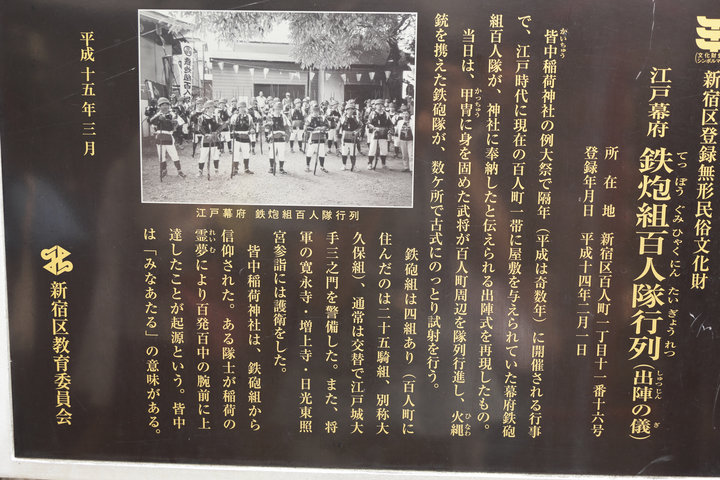 文化財
シンボルマーク
新宿区登録無形民俗文化財
江戸幕府 鉄炮組百人隊行列(出陣の儀)
てっぽうぐみひゃくにんたいぎょうれつ
しゅつじん ぎ
所在地 新宿区百人町一丁目十一番十六号
登録年月日 平成十四年二月一日
皆中稲荷神社の例大祭で隔年(平成は奇数年)に開催される行事
かいちゅう
で、江戸時代に現在の百人町一帯に屋敷を与えられていた幕府鉄砲
組百人隊が、神社に奉納したと伝えられる出陣式を再現したもの。
当日は、甲冑に身を固めた武将が百人町周辺を隊列行進し、火縄
かっちゅう
ひなわ
銃を携えた鉄砲隊が、数ケ所で古式にのっとり試射を行う。
江戸幕府 鉄炮組百人隊行列
鉄砲組は四組あり(百人町に
住んだのは二十五騎組、別称大
久保組)、通常は交替で江戸城大
手三之門を警備した。また、将
軍の寛永寺・増上寺・日光東照
宮参詣には護衛をした。
皆中稲荷神社は、鉄砲組から
信仰された。ある隊士が稲荷の
霊夢により百発百中の腕前に上
れいむ
達したことが起源という。皆中
は「みなあたる」の意味がある。
平成十五年三月
新宿区教育委員会